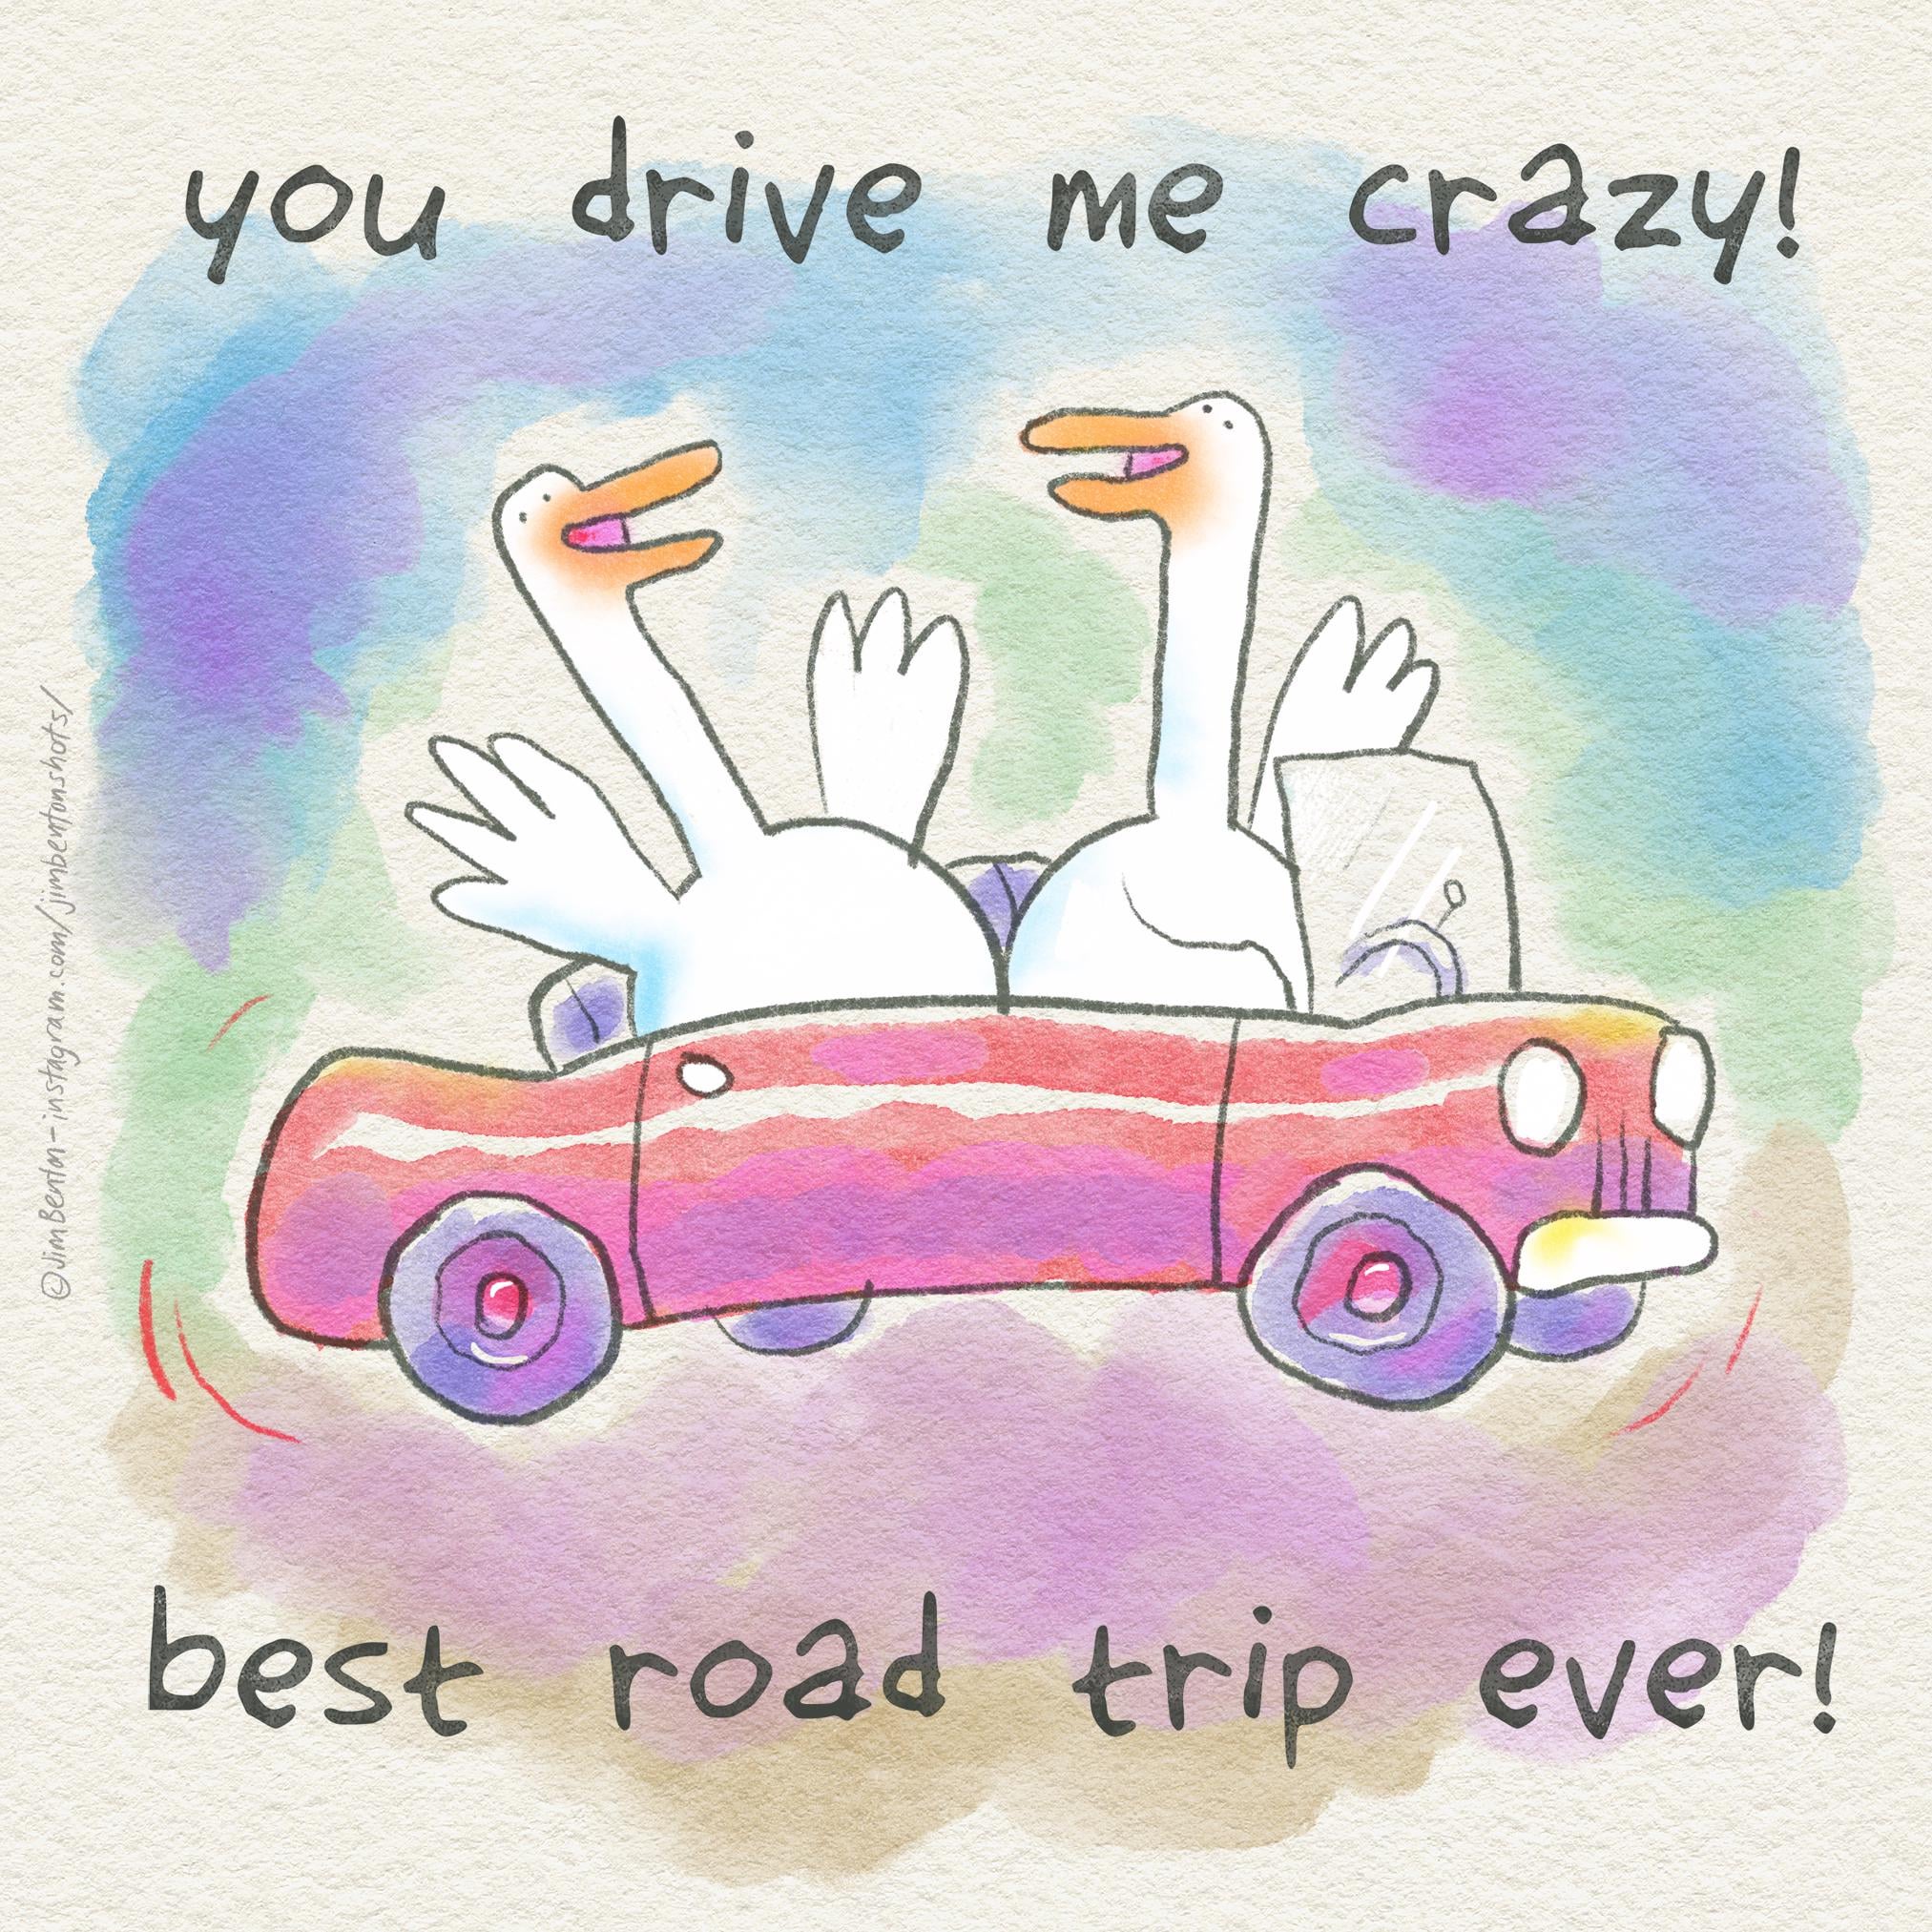 you drive me crazy!
@JimBenton-instagram.com/jimbentonshots/
best road trip ever!